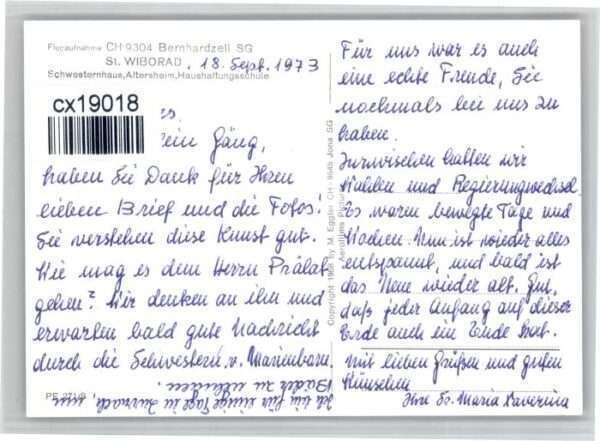 Flugaufnahme CH-9304 Bernhardzell SG
St. WIBORAD, 18. Sept. 1973
Schwesternhaus, Altersheim, Haushaltungsschule
cx19018
es.
ein Gäng,
haben Sie Dank für Ihren
lieben Brief und die Fotos!
Sie verstehen diese Kunst gut.
Wie mag es dem Herrn Prälat
gehen? Wir denken an ihn und
erwarten bald gute Nachricht
durch die Schwestern v. Marienbarn.
PE
Ich bin für einige Tage in Zurzach um
Bäder zu nehmen.
Copyright 1968 by M. Eggler CH-8645 Jona SG
Für uns war es auch
eine echte Freude, Sie
nochmals bei uns zu
haben.
Inzwischen hatten wir
Wahlen und Regierungwechsel.
Es waren bewegte Tage und
Wochen. Nun ist wieder alles
entspannt, und bald ist
das Neue wieder alt. Gut,
daß jeder Anfang auf dieser
Erde auch ein Ende hat.
Mit lieben Grüßen und guten
Wünschen
Ihre Sr. Maria Xaverina